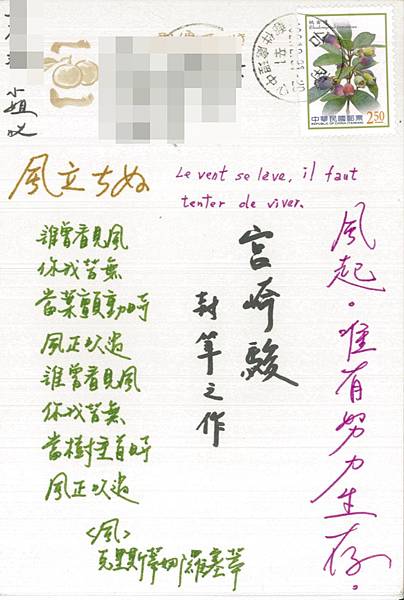 小姐 收
中華民國郵票
REPUBLIC OF CHINA (TAIWAN)
2.50
風立ちぬ
Le vent se lève, il faut
tenter de viver.
風起。唯有努力生存。
宮崎駿
封筆之作
誰曾看見風
你我皆無
當葉顫動時
風正吹過
誰曾看見風
你我皆無
當樹垂首時
風正吹過
<風>
克里斯蒂娜羅塞蒂